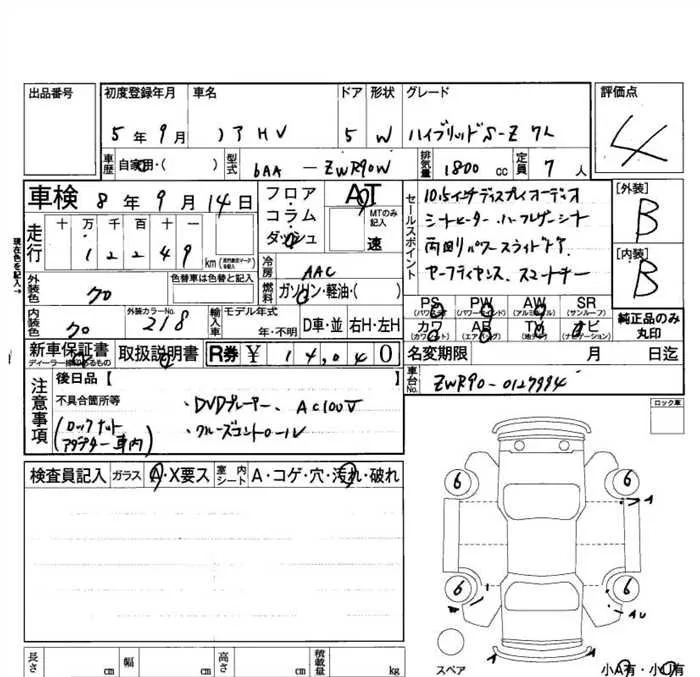 出品番号 初度登録年月 車名 ドア 形状 グレード 評価点
5 年 9 月 ノア HV 5 W ハイブリッド S-Z 7人 4
車歴 自家用・( ) 型式 6AA - ZWR90W 排気量 1800 cc 定員 7 人
車検 8 年 9 月 14 日 フロア・コラム・ダッシュ AT MTのみ記入 速
セールスポイント 10.5インチディスプレイオーディオ
シートヒーター ハーフレザーシート
両側パワースライドドア
セーフティセンス スマートキー
[外装] B
[内装] B
現在色を記入→
走行 十 万 千 百 十 一
1 2 2 4 9 km
冷房 AAC
外装色 クロ 色替車は色替と記入
燃料 ガソリン・軽油・( )
内装色 クロ 外装カラーNo. 218 輸入車 モデル年式 年・不明 D車・並 右H・左H
PS (パワステ) PW (パワーウインド) AW (アルミホイル) SR (サンルーフ)
カワ (カワシート) AB (エアバッグ) TV (地デジ) ナビ (ナビゲーション)
純正品のみ丸印
新車保証書 取扱説明書 R券 ¥ 1 4,0 4 0
ディーラー捺印あるもの
名変期限 月 日迄
車台No. ZWR90-0127994
注意事項 後日品【 】
不具合箇所等 ・DVDプレーヤー、AC100V
・クルーズコントロール
(ロックナットアダプター車内)
ロック車
検査員記入 ガラス A・X要ス 室内シート A・コゲ・穴・汚れ・破れ
6 6 A
6 6 AU
A A
スペア 小A有・小U有
長さ cm 幅 cm 高さ cm 積載量 kg